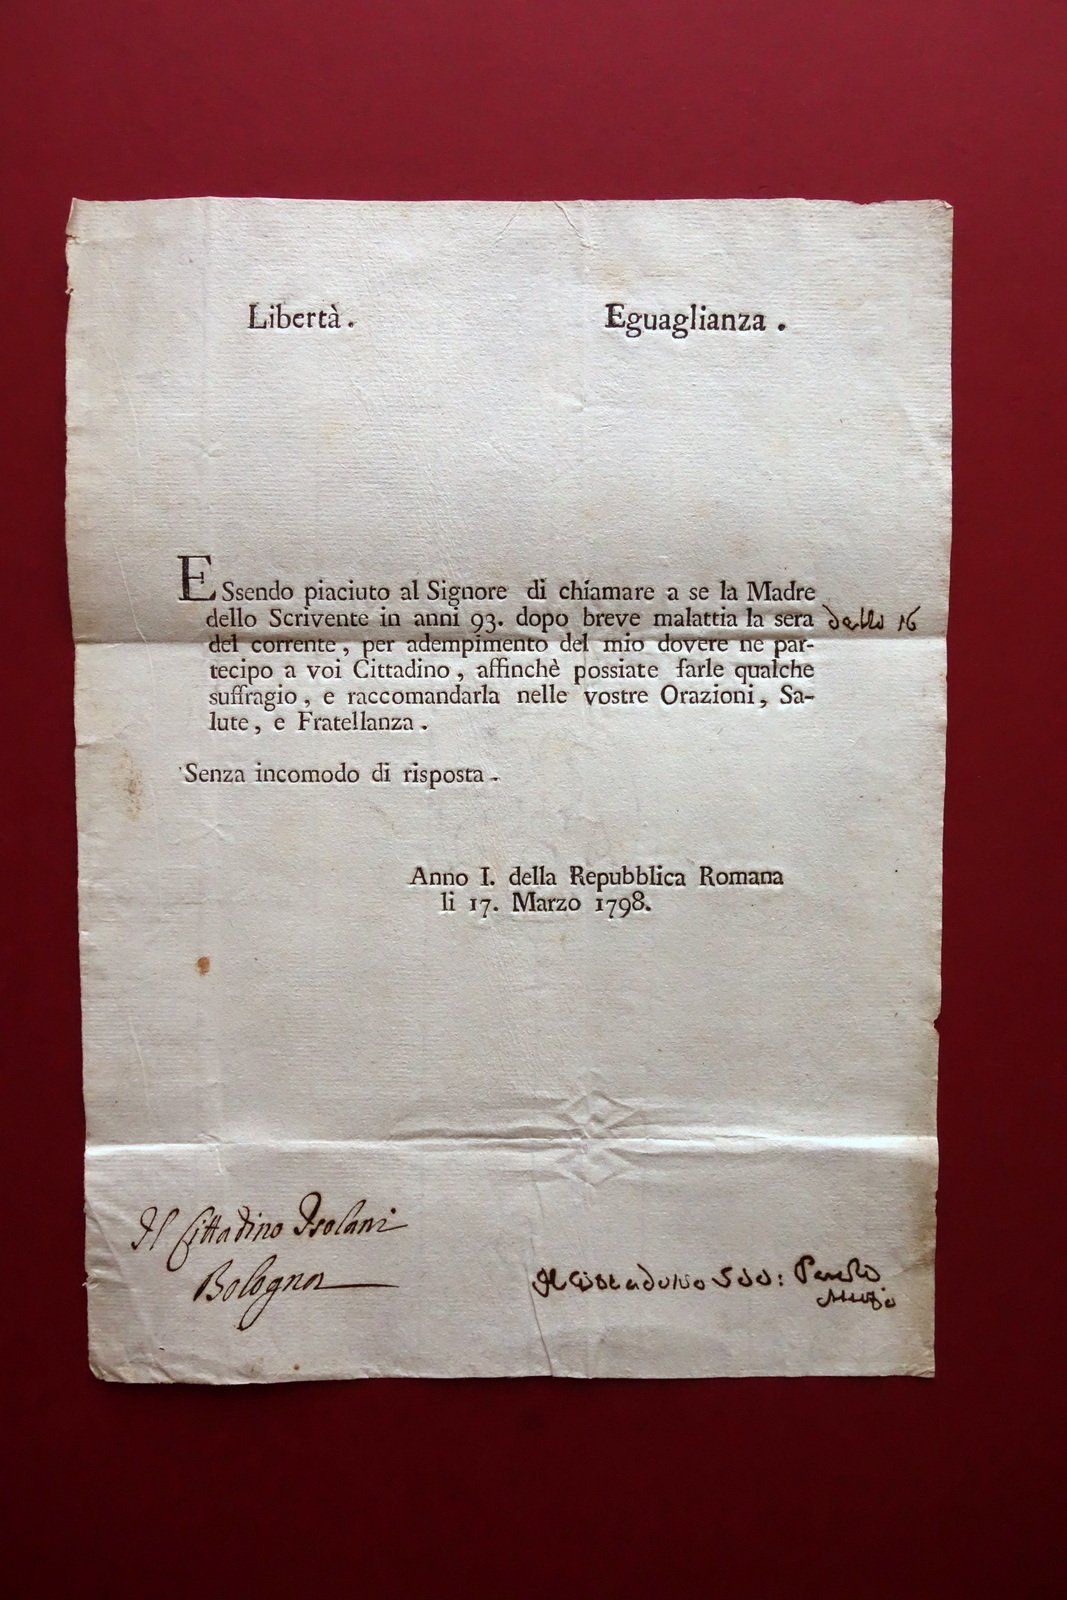 Libertà. Eguaglianza.
ESsendo piaciuto al Signore di chiamare a se la Madre
dello Scrivente in anni 93. dopo breve malattia la sera dello 16
del corrente, per adempimento del mio dovere ne par-
tecipo a voi Cittadino, affinchè possiate farle qualche
suffragio, e raccomandarla nelle vostre Orazioni, Sa-
lute, e Fratellanza.
Senza incomodo di risposta.
Anno I. della Repubblica Romana
li 17. Marzo 1798.
Il Cittadino Isolani
Bologna
Il Cittadino